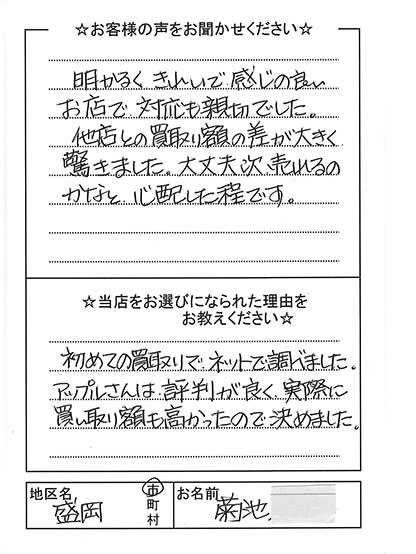 ☆お客様の声をお聞かせください☆
明かるく きれいで 感じの良い
お店で 対応も親切でした。
他店との買取り額の差が大きく
驚きました。大丈夫次売れるの
かなと 心配した程です。
☆当店をお選びになられた理由を
お教えください☆
初めての買取りで ネットで調べました。
アップルさんは 評判が良く 実際に
買い取り額も高かったので 決めました。
地区名 盛岡 市町村 お名前 菊池